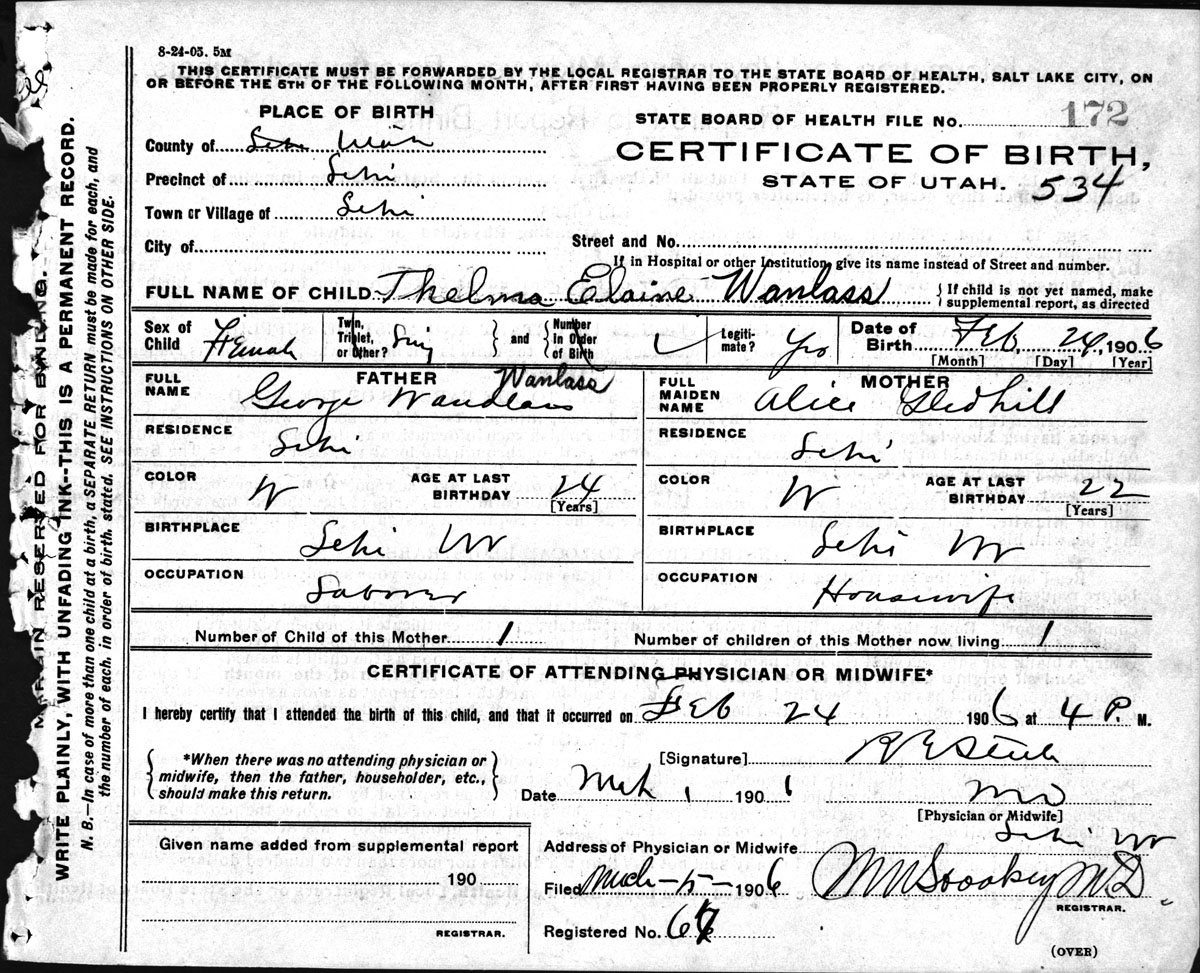 8-24-05. 5M
THIS CERTIFICATE MUST BE FORWARDED BY THE LOCAL REGISTRAR TO THE STATE BOARD OF HEALTH, SALT LAKE CITY, ON
OR BEFORE THE 5TH OF THE FOLLOWING MONTH, AFTER FIRST HAVING BEEN PROPERLY REGISTERED.
PLACE OF BIRTH
STATE BOARD OF HEALTH FILE No. 172
County of Utah
CERTIFICATE OF BIRTH,
Precinct of Lehi
STATE OF UTAH. 534
Town or Village of Lehi
City of
Street and No.
If in Hospital or other Institution, give its name instead of Street and number.
FULL NAME OF CHILD Thelma Elaine Wanlass { If child is not yet named, make
supplemental report, as directed
Sex of Child Female Twin, Triplet, or Other? Sing } and { Number In Order of Birth Legiti- mate? Yes Date of Birth Feb, 24, 1906
[Month] [Day] [Year]
FULL NAME FATHER Wanlass
George
FULL MAIDEN NAME MOTHER
Alice Gledhill
RESIDENCE Lehi
RESIDENCE Lehi
COLOR W AGE AT LAST BIRTHDAY 24 [Years]
COLOR W AGE AT LAST BIRTHDAY 22 [Years]
BIRTHPLACE Lehi Ut
BIRTHPLACE Lehi Ut
OCCUPATION Laborer
OCCUPATION Housewife
Number of Child of this Mother 1 Number of children of this Mother now living 1
CERTIFICATE OF ATTENDING PHYSICIAN OR MIDWIFE*
I hereby certify that I attended the birth of this child, and that it occurred on Feb 24 1906 at 4 P. M.
{ *When there was no attending physician or
midwife, then the father, householder, etc.,
should make this return. }
[Signature] R E Steele
Date Mch 1 190
MD
[Physician or Midwife]
Given name added from supplemental report
190
REGISTRAR.
Address of Physician or Midwife Lehi Ut
Filed March 5 1906
M.D.
REGISTRAR.
Registered No.
(OVER)
MARGIN RESERVED FOR BINDING.
WRITE PLAINLY, WITH UNFADING INK--THIS IS A PERMANENT RECORD.
N. B.—In case of more than one child at a birth, a SEPARATE RETURN must be made for each, and
the number of each, in order of birth, stated. SEE INSTRUCTIONS ON OTHER SIDE.